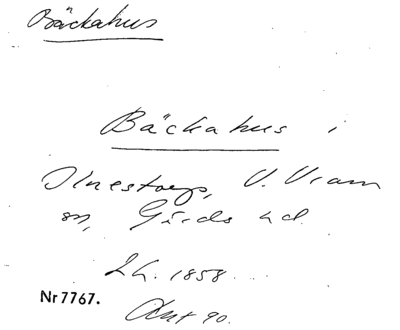 Bäckahus
Bäckahus i
Ilnestorp, V. Vram
sn, Gärds hd.
LG. 1858.
Nr 7767.
Ant 90.